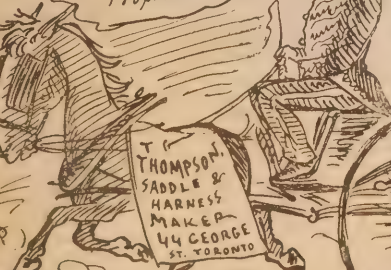 T
THOMPSON,
SADDLE &
HARNESS
MAKER
44 GEORGE
ST. TORONTO